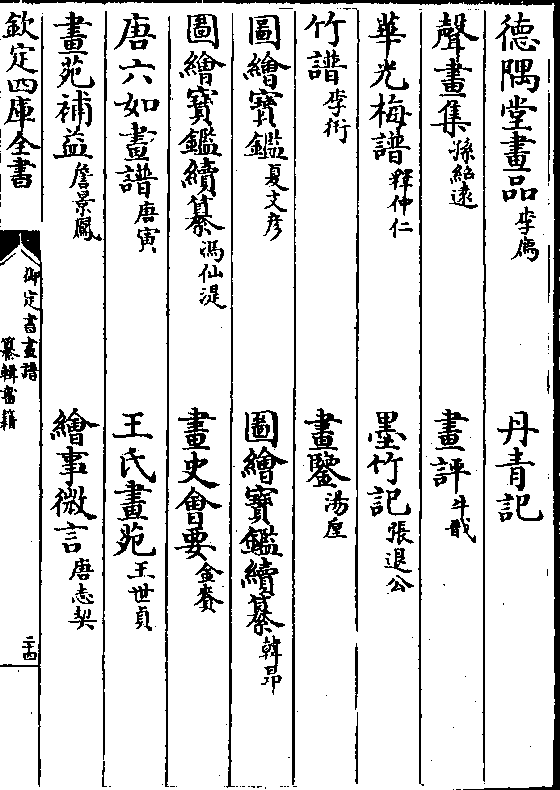 德隅堂畫品 李廌 丹青記
聲畫集 孫紹遠 畫評 牛戩
華光梅譜 釋仲仁 墨竹記 張退公
竹譜 李衎 畫鑒 湯垕
圖繪寶鑑 夏文彦 圖繪寶鑑續纂 韓昂
圖繪寶鑑續纂 馮仙湜 畫史會要 金賚
唐六如畫譜 唐寅 王氏畫苑 王世貞
畫苑補益 詹景鳳 繪事微言 唐志契
欽定四庫全書 御定書畫譜 纂輯書籍 二十四